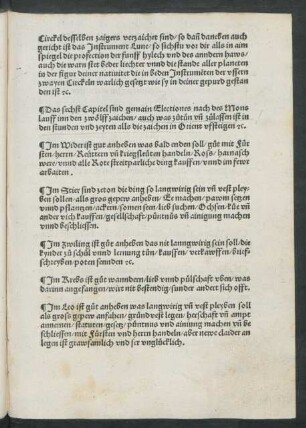 Circkel desselben zaigers verzaichet sind / so dan̄ daneben auch
gericht ist das Instrument Lune / so sichstu vor dir alls in aim
spiegel die proiection der funff hyslich vnd des anndern haws
auch die warn ster beder liechter vnnd die stande aller planeten
in der figur deiner natiuitet die in beden Instrumēten der vssern
zwayen Circkeln warlich gesetzt wie sy in deiner gepurd gestan
den ist ꝛc.
¶ Das sechst Capitel sind gemain Electiones nach des Mons
lauff inn den zwölff zaichen / auch was zůtůn vn̄ zůlassen ist in
den stunden vnd zeyten alls die zaichen in Orient vffsteigen ꝛc.
¶ Im Wider ist gut anheben was bald enden soll / gůt mit Für
sten / herrn / Richtern vn̄ kriegsleuten handeln / Ross / harnasch
were / vnnd alle Rote streitparliche ding kauffen / vnnd im fewr
arbaiten.
¶ Im Stier sind zeton die ding so langwirig sein vn̄ vest pley
ben sollen / alls gross gepew anheben / Ee machen / pawm setzen
vnnd pflantzen / ackern / somen seen / lieb suchen / Ochsen / küe vn̄
ander vich kauffen / geselschafft / püntnüs vn̄ ainigung machen
vnnd beschliessen.
¶ Im zwiling ist gůt anheben das nit lanngwirig sein soll / die
kynder zů schůl vnnd lernung tůn / kauffen / verkawffen / brief
schreyben poten sennden ꝛc.
¶ Im Krebs ist gůt wanndern / lieb vnnd půlschafft vben / was
darinn angefangen / würt nit bestendig sunder andert sich offt.
¶ Im Leo ist gůt anheben was langwirig vn̄ vest pleyben soll
als gross gepew anfahen / grundvest legen / herschafft vn̄ ampt
annemen / statuten / gesetz / püntnus vnd ainung machen vn̄ be
schliessen / mit Fürsten vnd herrn handeln / aber newe claider an
legen ist grawsamlich vnd ser vnglücklich.